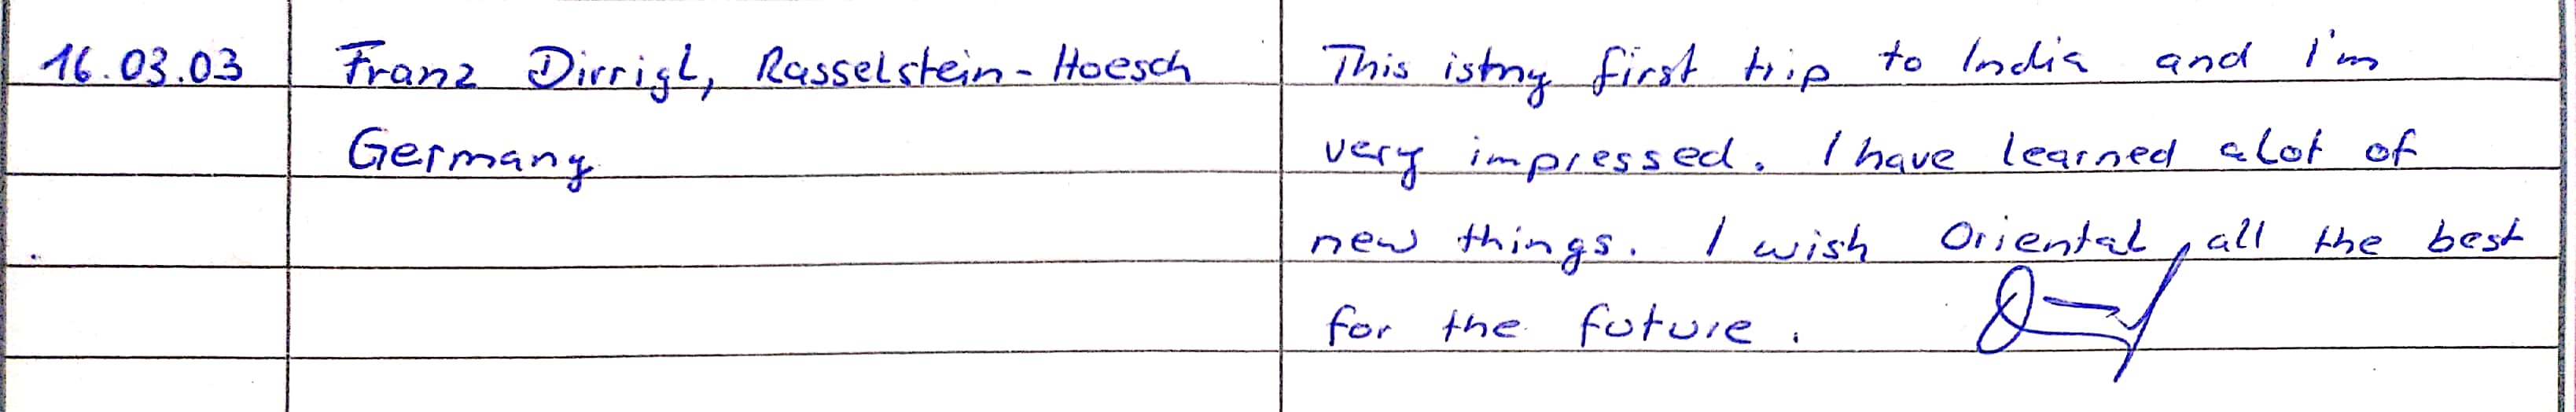 16.03.03 Franz Dirrigl, Rasselstein-Hoesch This is my first trip to India and I'm
Germany very impressed. I have learned alot of
new things. I wish Oriental all the best
for the future.